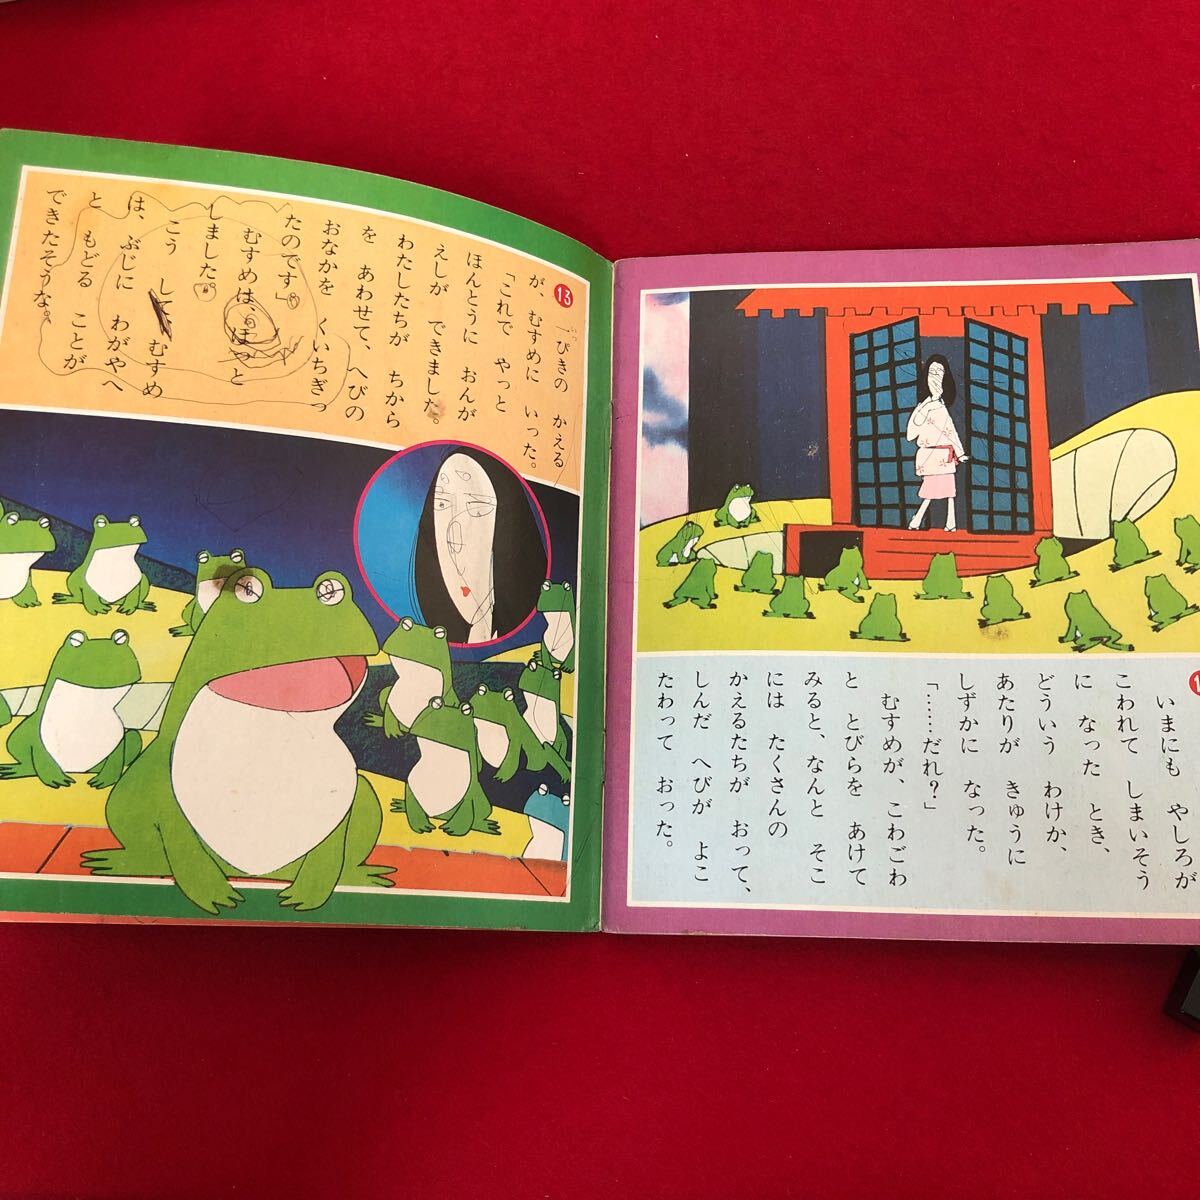 1
いまにも やしろが
こわれて しまいそう
に なった とき、
どういう わけか、
あたりが きゅうに
しずかに なった。
「……だれ?」
むすめが、こわごわ
と とびらを あけて
みると、なんと そこ
には たくさんの
かえるたちが おって、
しんだ へびが よこ
たわって おった。
13
一ぴきの かえる
いっ
が、むすめに いった。
「これで やっと
ほんとうに おんが
えしが できました。
わたしたちが ちから
を あわせて、へびの
おなかを くいちぎっ
たのです」
むすめは、ほっと
しました。
こう して むすめ
は、ぶじに わがやへ
と もどる ことが
できたそうな。